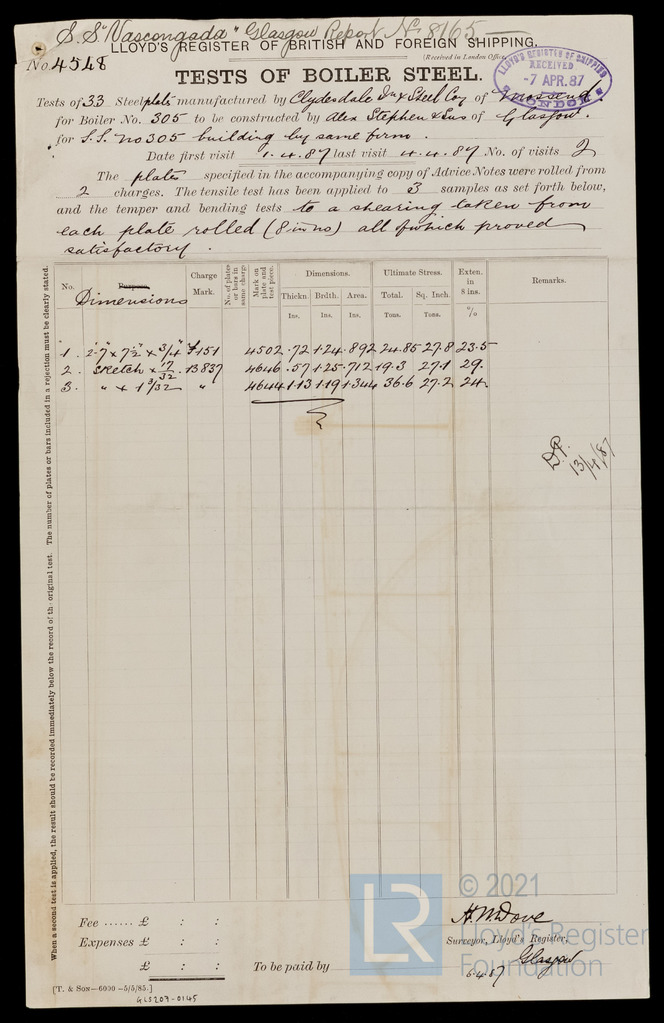 S.S. "Vascongada" Glasgow Report No 8165
LLOYD'S REGISTER OF BRITISH AND FOREIGN SHIPPING.
No. 4548
(Received in London Office
LLOYD'S REGISTER OF SHIPPING
RECEIVED
-7 APR.87
LONDON
TESTS OF BOILER STEEL.
Tests of 33 Steel plate manufactured by Clydesdale Irn & Steel Coy of Mossend.
for Boiler No. 305 to be constructed by Alex Stephen & Sons of Glasgow.
for S.S. No 305 building by same firm.
Date first visit 1.4.87 last visit 4.4.87 No. of visits 2
The plates specified in the accompanying copy of Advice Notes were rolled from
2 charges. The tensile test has been applied to 3 samples as set forth below,
and the temper and bending tests to a shearing taken from
each plate rolled (8 in no) all of which proved
satisfactory.
No. Purpose. Dimensions Charge Mark. No. of plates or bars in same charge Mark on plate and test piece. Dimensions. Ultimate Stress. Exten. in 8 ins. Remarks.
Thickn Brdth. Area. Total. Sq. Inch.
Ins. Ins. Tons. Tons. %
1. 2'-7" x 7'-2" x 3/4" 4151 4502 .72 1.24 .892 24.85 27.8 23.5
2. Sketch x 17/32 13837 4646 .57 1.25 .712 19.3 27.1 29.
3. " x 1 3/32 " 4644 1.13 1.19 1.344 36.6 27.2 24
D.P.
13/4/87
When a second test is applied, the result should be recorded immediately below the record of the original test. The number of plates or bars included in a rejection must be clearly stated.
Fee ...... £ : :
Expenses £ : :
£ : :
To be paid by
H. W. Dove
Surveyor, Lloyd's Register,
Glasgow
6.4.87
[T. & Son—6000—5/5/85.]
GLS209-0145
LR
© 2021
Lloyd's Register
Foundation